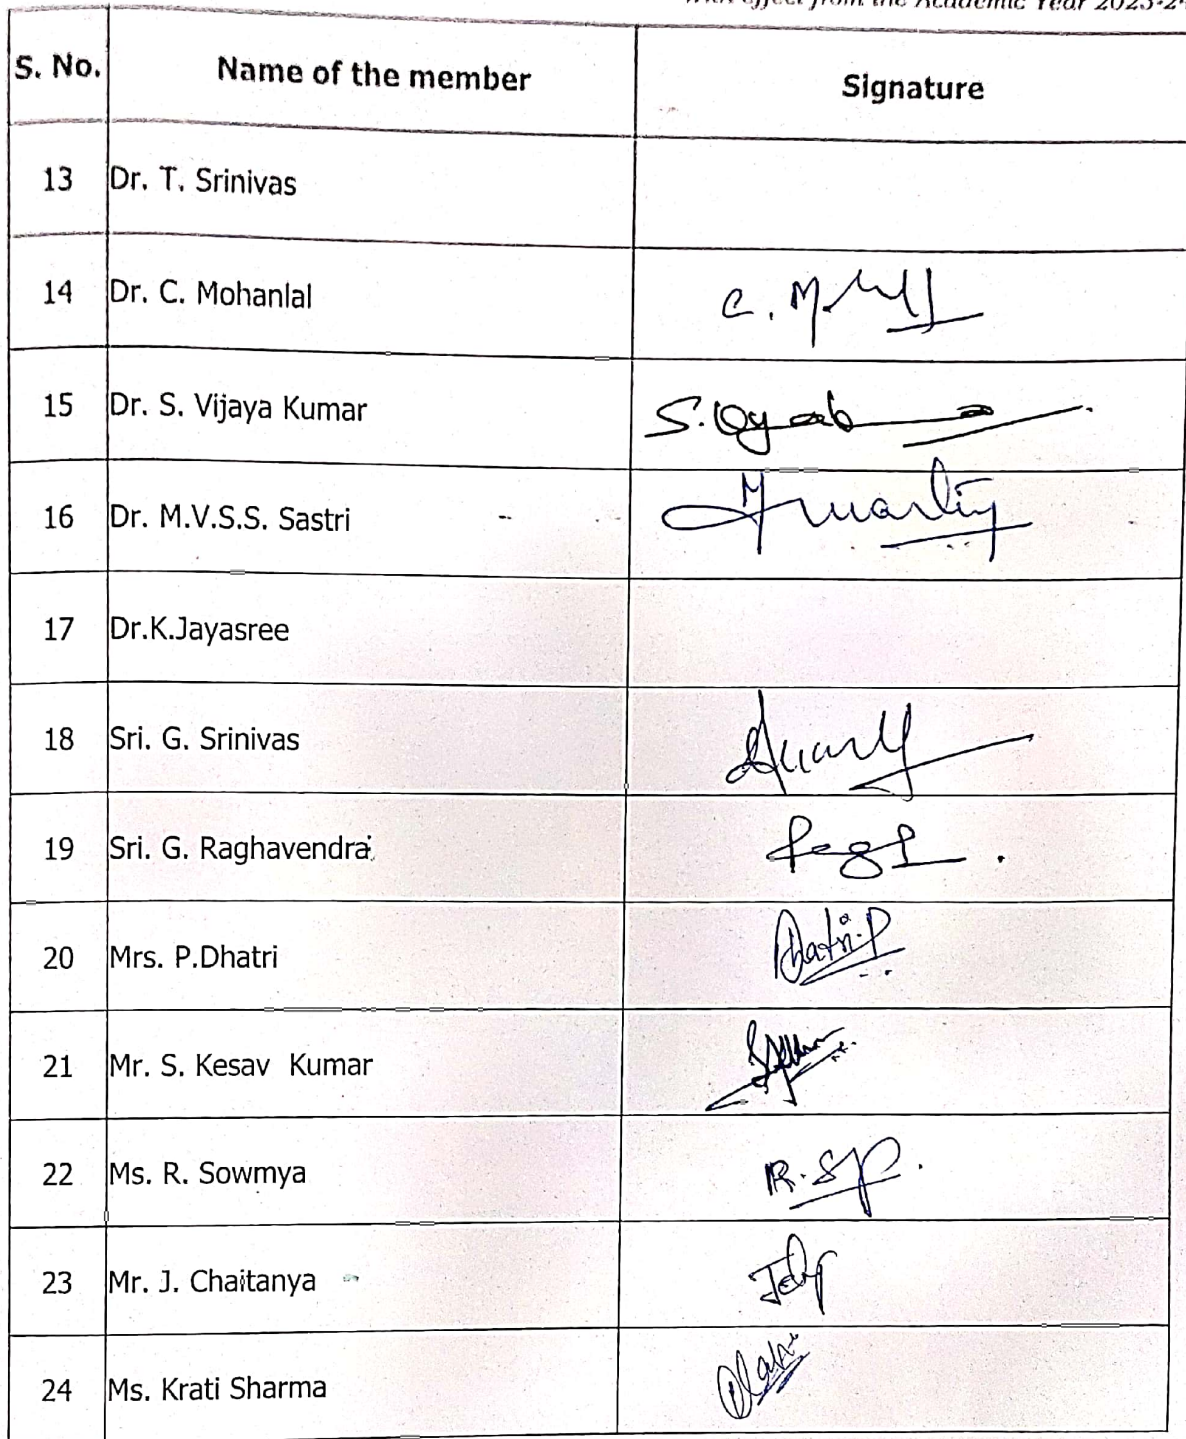 with effect from the Academic Year 2023-2
S. No. Name of the member Signature
13 Dr. T. Srinivas
14 Dr. C. Mohanlal
15 Dr. S. Vijaya Kumar
16 Dr. M.V.S.S. Sastri
17 Dr.K.Jayasree
18 Sri. G. Srinivas
19 Sri. G. Raghavendra
20 Mrs. P.Dhatri Dhatri.P
21 Mr. S. Kesav Kumar
22 Ms. R. Sowmya
23 Mr. J. Chaitanya
24 Ms. Krati Sharma